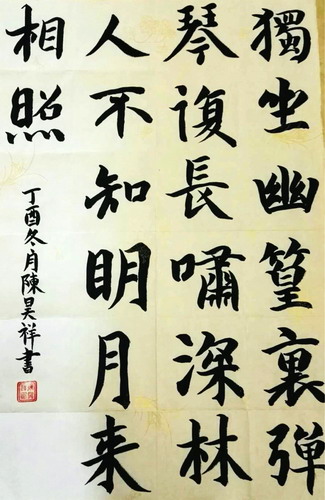 獨坐幽篁裏彈
琴復長嘯深林
人不知明月来
相照
丁酉冬月陳昊祥書